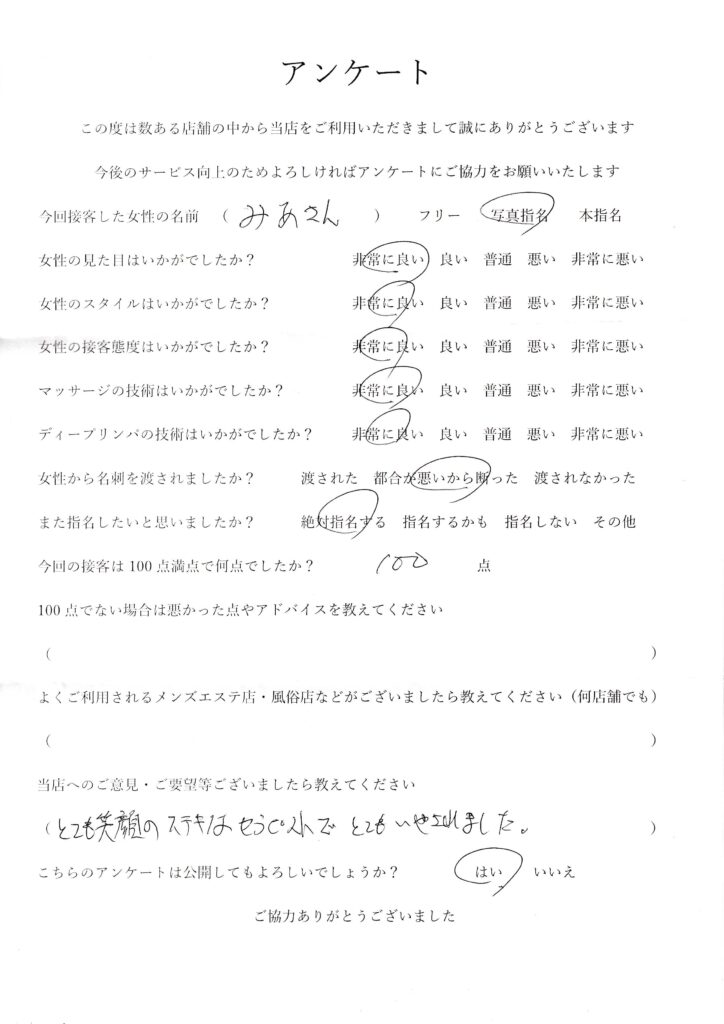 アンケート
この度は数ある店舗の中から当店をご利用いただきまして誠にありがとうございます
今後のサービス向上のためよろしければアンケートにご協力をお願いいたします
今回接客した女性の名前 （ みあさん ） フリー 写真指名 本指名
女性の見た目はいかがでしたか？ 非常に良い 良い 普通 悪い 非常に悪い
女性のスタイルはいかがでしたか？ 非常に良い 良い 普通 悪い 非常に悪い
女性の接客態度はいかがでしたか？ 非常に良い 良い 普通 悪い 非常に悪い
マッサージの技術はいかがでしたか？ 非常に良い 良い 普通 悪い 非常に悪い
ディープリンパの技術はいかがでしたか？ 非常に良い 良い 普通 悪い 非常に悪い
女性から名刺を渡されましたか？ 渡された 都合が悪いから断った 渡されなかった
また指名したいと思いましたか？ 絶対指名する 指名するかも 指名しない その他
今回の接客は100点満点で何点でしたか？ 100 点
100点でない場合は悪かった点やアドバイスを教えてください
（ ）
よくご利用されるメンズエステ店・風俗店などがございましたら教えてください（何店舗でも）
（ ）
当店へのご意見・ご要望等ございましたら教えてください
（とても笑顔のステキなセラピストで とてもいやされました。 ）
こちらのアンケートは公開してもよろしいでしょうか？ はい いいえ
ご協力ありがとうございました